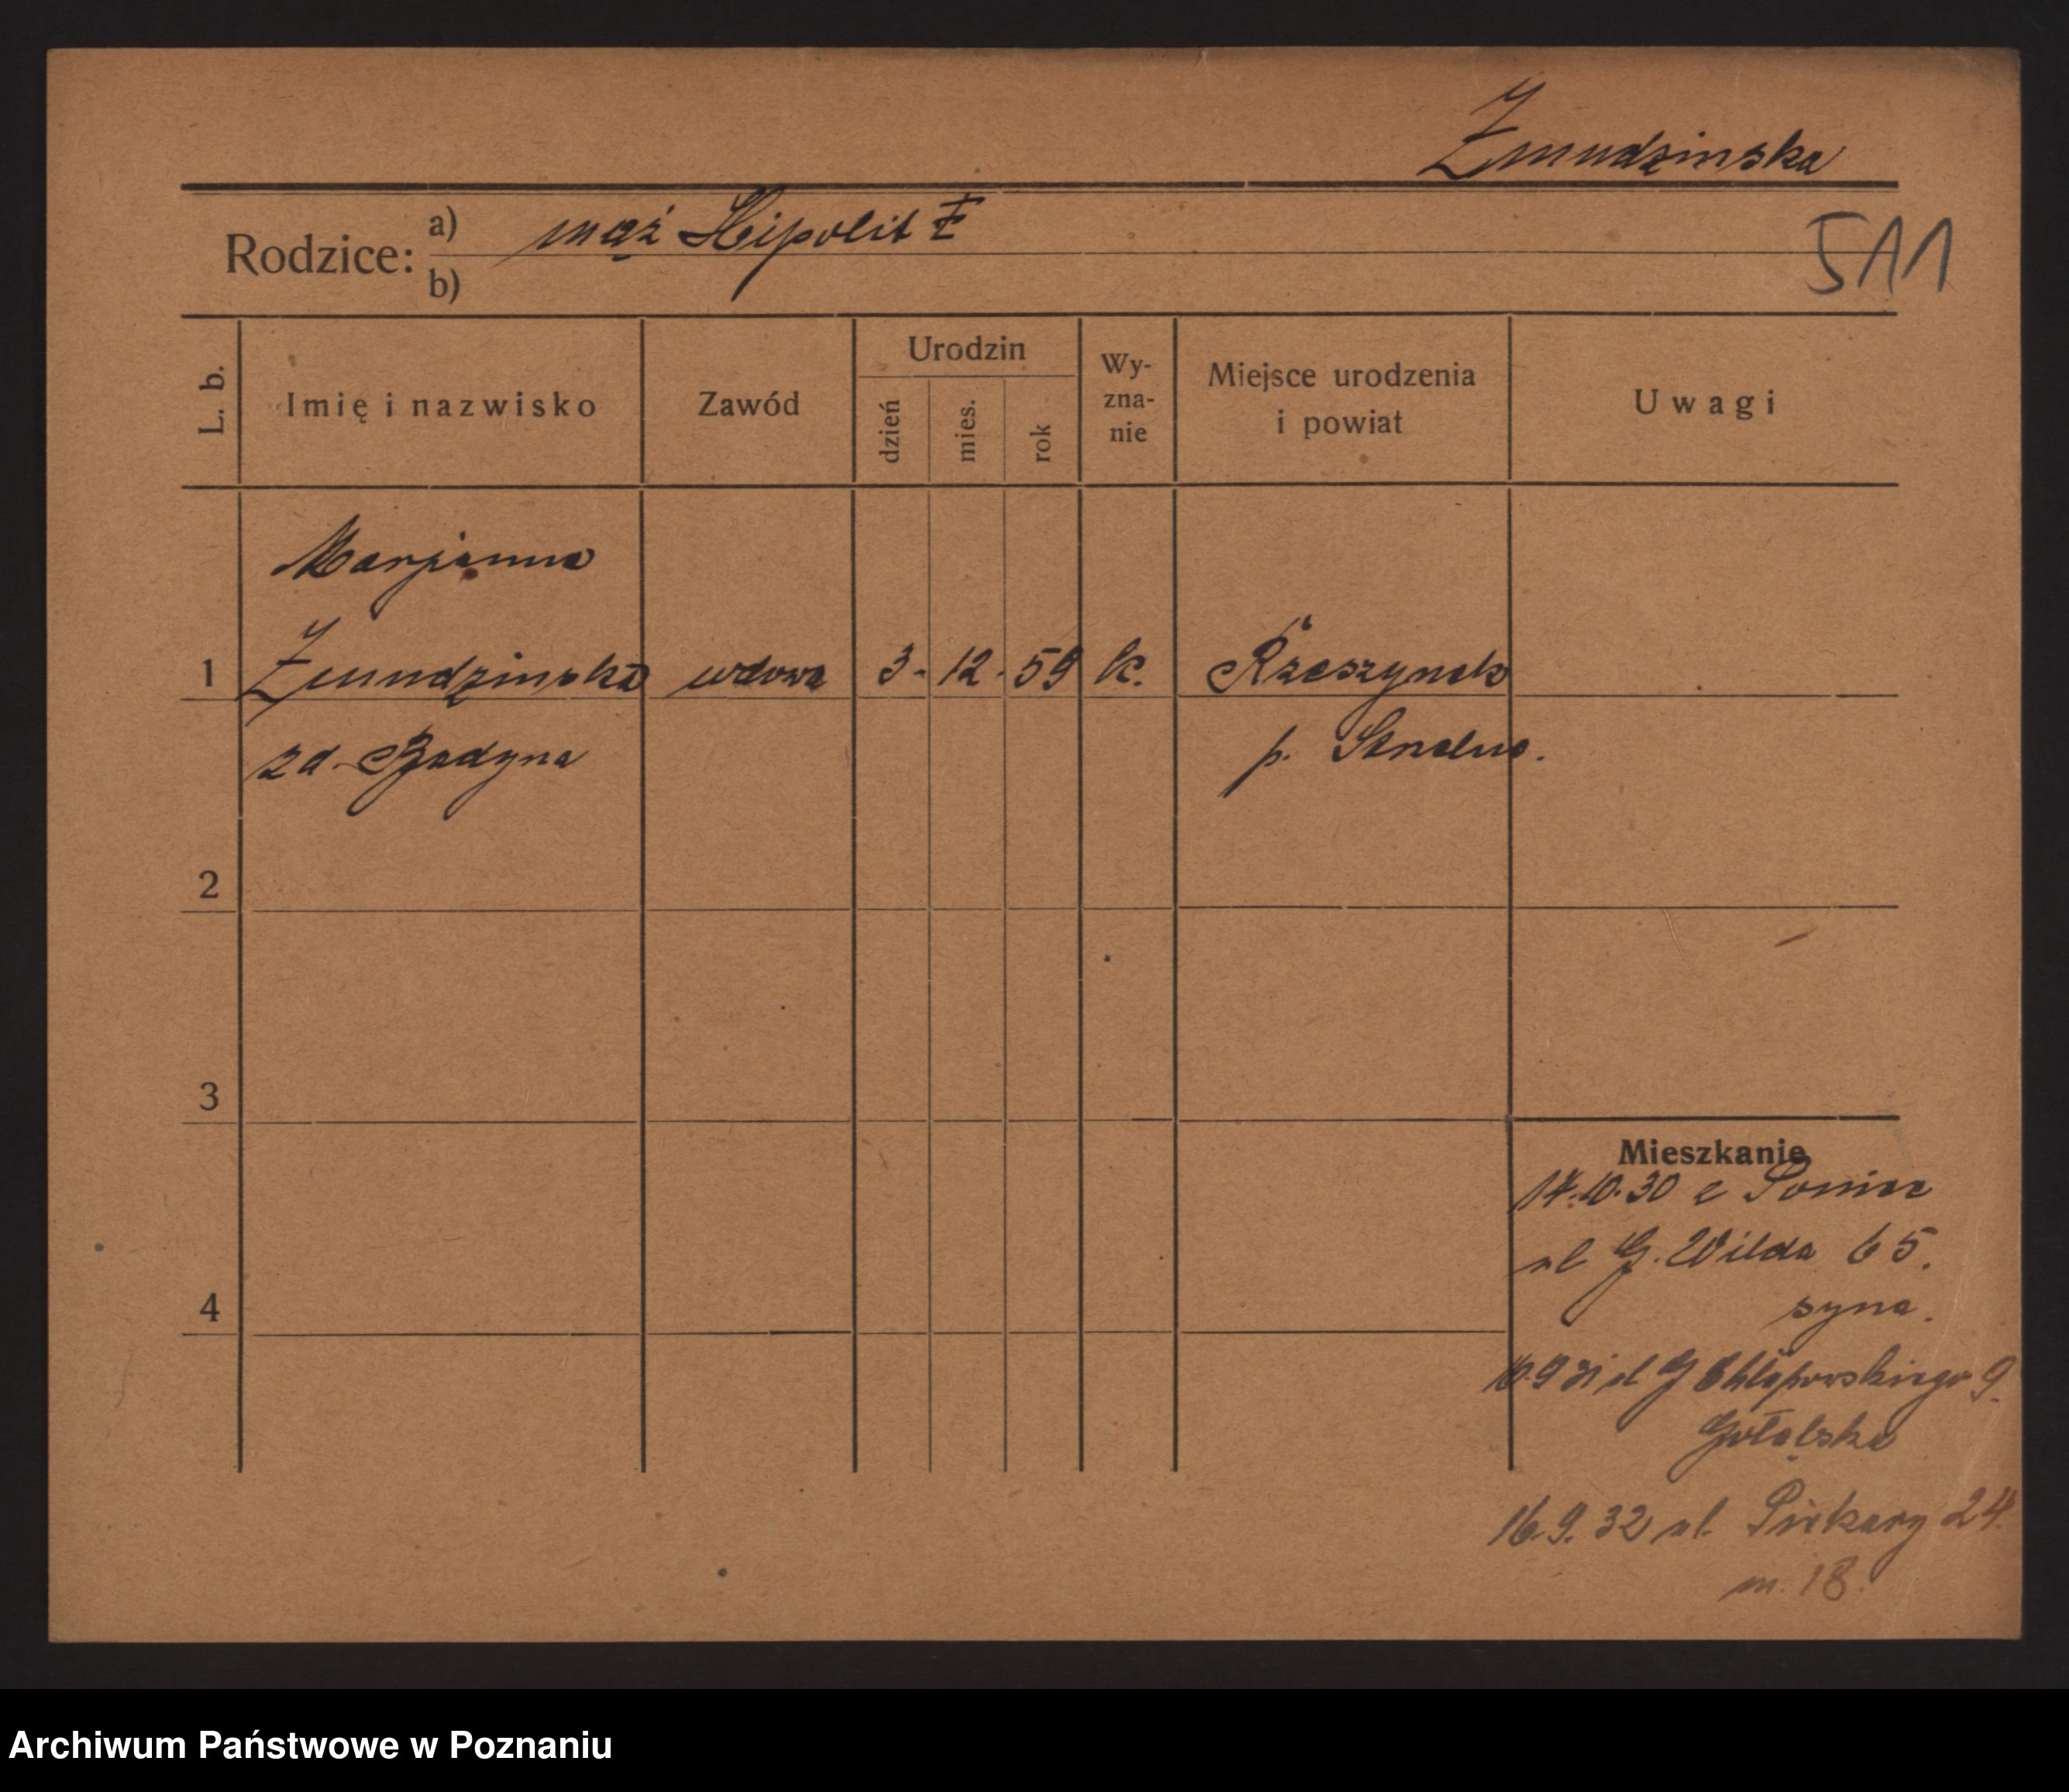 Żmudzinska
Rodzice: a) mąż Hipolit Ż
b)
511
L. b.
Imię i nazwisko
Zawód
Urodzin
dzień
mies.
rok
Wy-
zna-
nie
Miejsce urodzenia
i powiat
Uwagi
Marjanna
1 Żmudzinska wdowa 3. 12. 59 k. Rzeszynek
zd. p. Strelno.
2
3
4
Mieszkanie
17.10.30 z Poniec
ul G. Wilda 65.
syna.
10.9 31 ul G Chłapowskiego 9.
16.9.32 ul. Piekary 24.
m. 18.
Archiwum Państwowe w Poznaniu